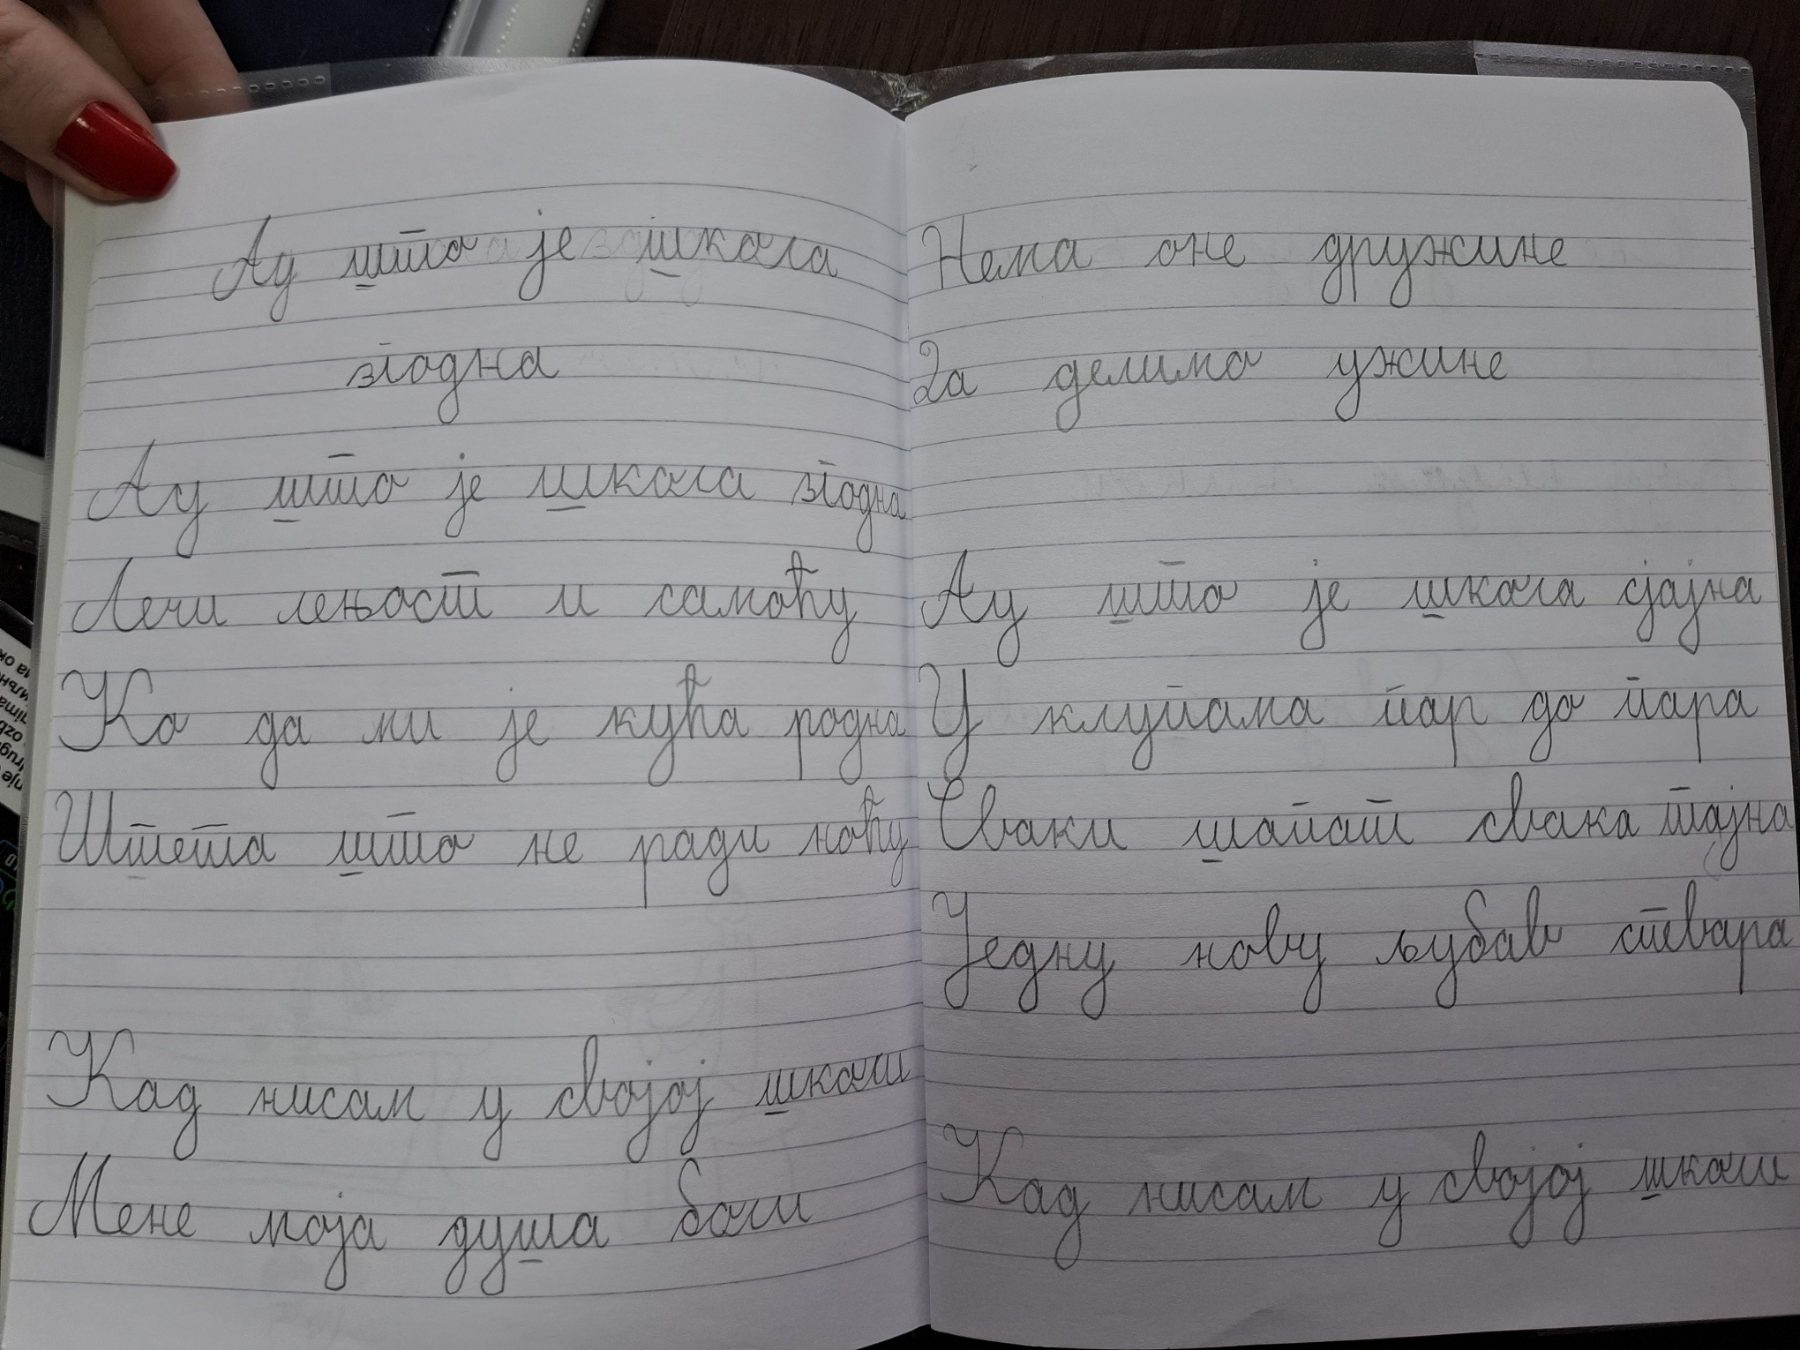 Ау што је школа
згодна
Ау што је школа згодна
Лечи лењост и самоћу
Ко да ми је кућа родна
Штета што не ради ноћу
Кад нисам у својој школи
Мене моја душа боли
Нема оне дружине
Да делимо ужине
Ау што је школа сјајна
У клупама пар до пара
Сваки шапат свака тајна
Једну нову љубав ствара
Кад нисам у својој школи